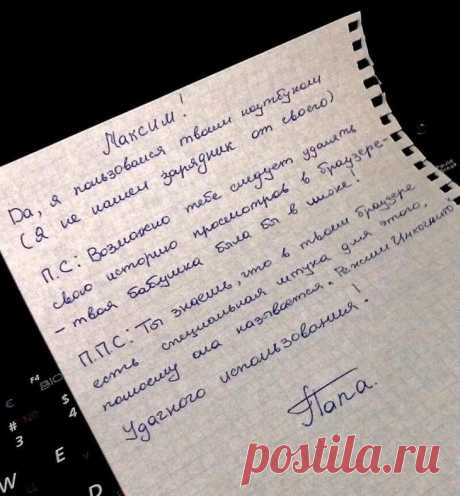 Максим!
Да, я пользовался твоим ноутбуком
(Я не нашел зарядник от своего)
П.С: Возможно тебе следует удалять
свою историю просмотров в браузере-
- твоя бабушка была бы в шоке!
П.П.С: Ты знаешь, что в твоем браузере
есть специальная штука для этого,
помоему она называется "Режим Инкогнито"
Удачного использования!
Папа.
F4
€
#
3
$
4
W
E
D
postila.ru